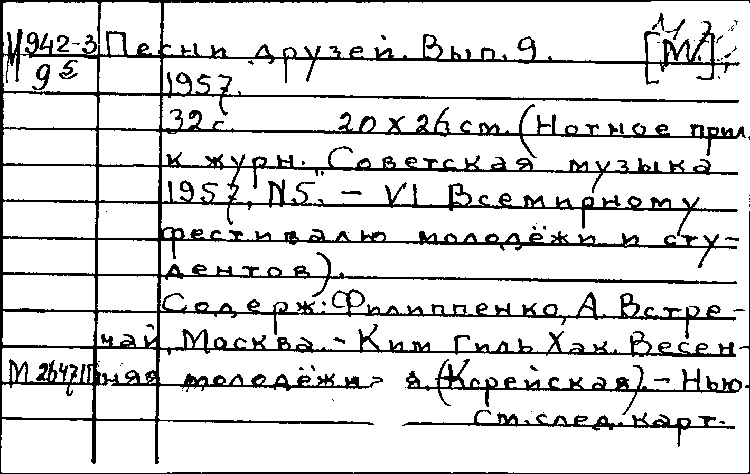 М942-3 Песни друзей. Вып. 9. [М.]
95 1957.
32 с. 20 х 26 см. (Нотное прил.
к журн. "Советская музыка
1957, N5. - VI Всемирному
фестивалю молодёжи и сту-
дентов).
Содерж: Филиппенко, А. Встре-
чай, Москва. - Ким Гиль Хак. Весен-
няя молодёжн (Корейская). - Нью-
См. след. карт.